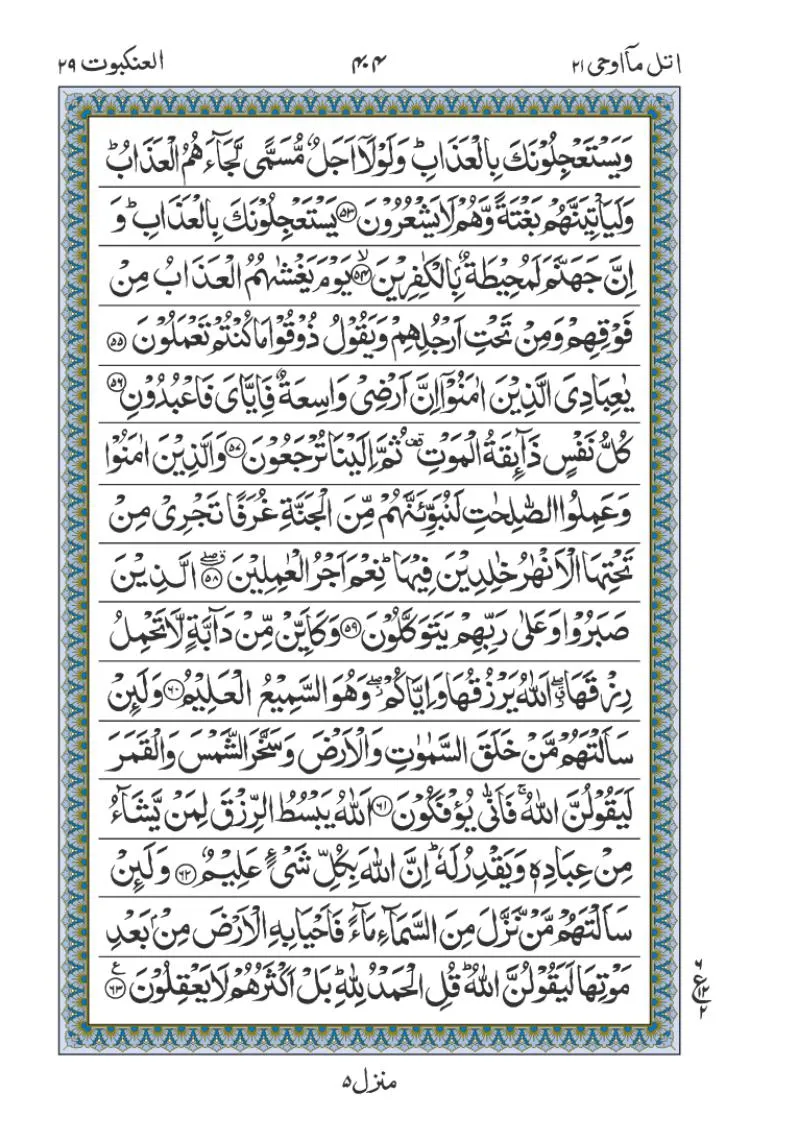 اتل مآاوحی ۲۱ ۴۰۴ العنکبوت ۲۹
وَيَسْتَعْجِلُوْنَكَ بِالْعَذَابِ ؕ وَلَوْلَاۤ اَجَلٌ مُّسَمًّى لَّجَآءَهُمُ الْعَذَابُ ؕ
وَلَيَاْتِيَنَّهُمْ بَغْتَةً وَّهُمْ لَا يَشْعُرُوْنَ ۵۳ يَسْتَعْجِلُوْنَكَ بِالْعَذَابِ ؕ وَ
اِنَّ جَهَنَّمَ لَمُحِيْطَةٌۢ بِالْكٰفِرِيْنَ ۙ ۵۴ يَوْمَ يَغْشٰىهُمُ الْعَذَابُ مِنْ
فَوْقِهِمْ وَمِنْ تَحْتِ اَرْجُلِهِمْ وَيَقُوْلُ ذُوْقُوْا مَا كُنْتُمْ تَعْمَلُوْنَ ۵۵
يٰعِبَادِىَ الَّذِيْنَ اٰمَنُوْۤا اِنَّ اَرْضِىْ وَاسِعَةٌ فَاِيَّاىَ فَاعْبُدُوْنِ ۵۶
كُلُّ نَفْسٍ ذَآئِقَةُ الْمَوْتِ ۫ ثُمَّ اِلَيْنَا تُرْجَعُوْنَ ۵۷ وَالَّذِيْنَ اٰمَنُوْا
وَعَمِلُوا الصّٰلِحٰتِ لَنُبَوِّئَنَّهُمْ مِّنَ الْجَنَّةِ غُرَفًا تَجْرِىْ مِنْ
تَحْتِهَا الْاَنْهٰرُ خٰلِدِيْنَ فِيْهَا ؕ نِعْمَ اَجْرُ الْعٰمِلِيْنَ ۖ ۵۸ الَّذِيْنَ
صَبَرُوْا وَعَلٰى رَبِّهِمْ يَتَوَكَّلُوْنَ ۵۹ وَكَاَيِّنْ مِّنْ دَآبَّةٍ لَّا تَحْمِلُ
رِزْقَهَا ۖ اللّٰهُ يَرْزُقُهَا وَاِيَّاكُمْ ۖ وَهُوَ السَّمِيْعُ الْعَلِيْمُ ۶۰ وَلَئِنْ
سَاَلْتَهُمْ مَّنْ خَلَقَ السَّمٰوٰتِ وَالْاَرْضَ وَسَخَّرَ الشَّمْسَ وَالْقَمَرَ
لَيَقُوْلُنَّ اللّٰهُ ۚ فَاَنّٰى يُؤْفَكُوْنَ ۶۱ اَللّٰهُ يَبْسُطُ الرِّزْقَ لِمَنْ يَّشَآءُ
مِنْ عِبَادِهٖ وَيَقْدِرُ لَهٗ ؕ اِنَّ اللّٰهَ بِكُلِّ شَىْءٍ عَلِيْمٌ ۶۲ وَلَئِنْ
سَاَلْتَهُمْ مَّنْ نَّزَّلَ مِنَ السَّمَآءِ مَآءً فَاَحْيَا بِهِ الْاَرْضَ مِنْۢ بَعْدِ
مَوْتِهَا لَيَقُوْلُنَّ اللّٰهُ ؕ قُلِ الْحَمْدُ لِلّٰهِ ؕ بَلْ اَكْثَرُهُمْ لَا يَعْقِلُوْنَ ۶۳ ع
۶ ع ۱۲ ۲
منزل ۵